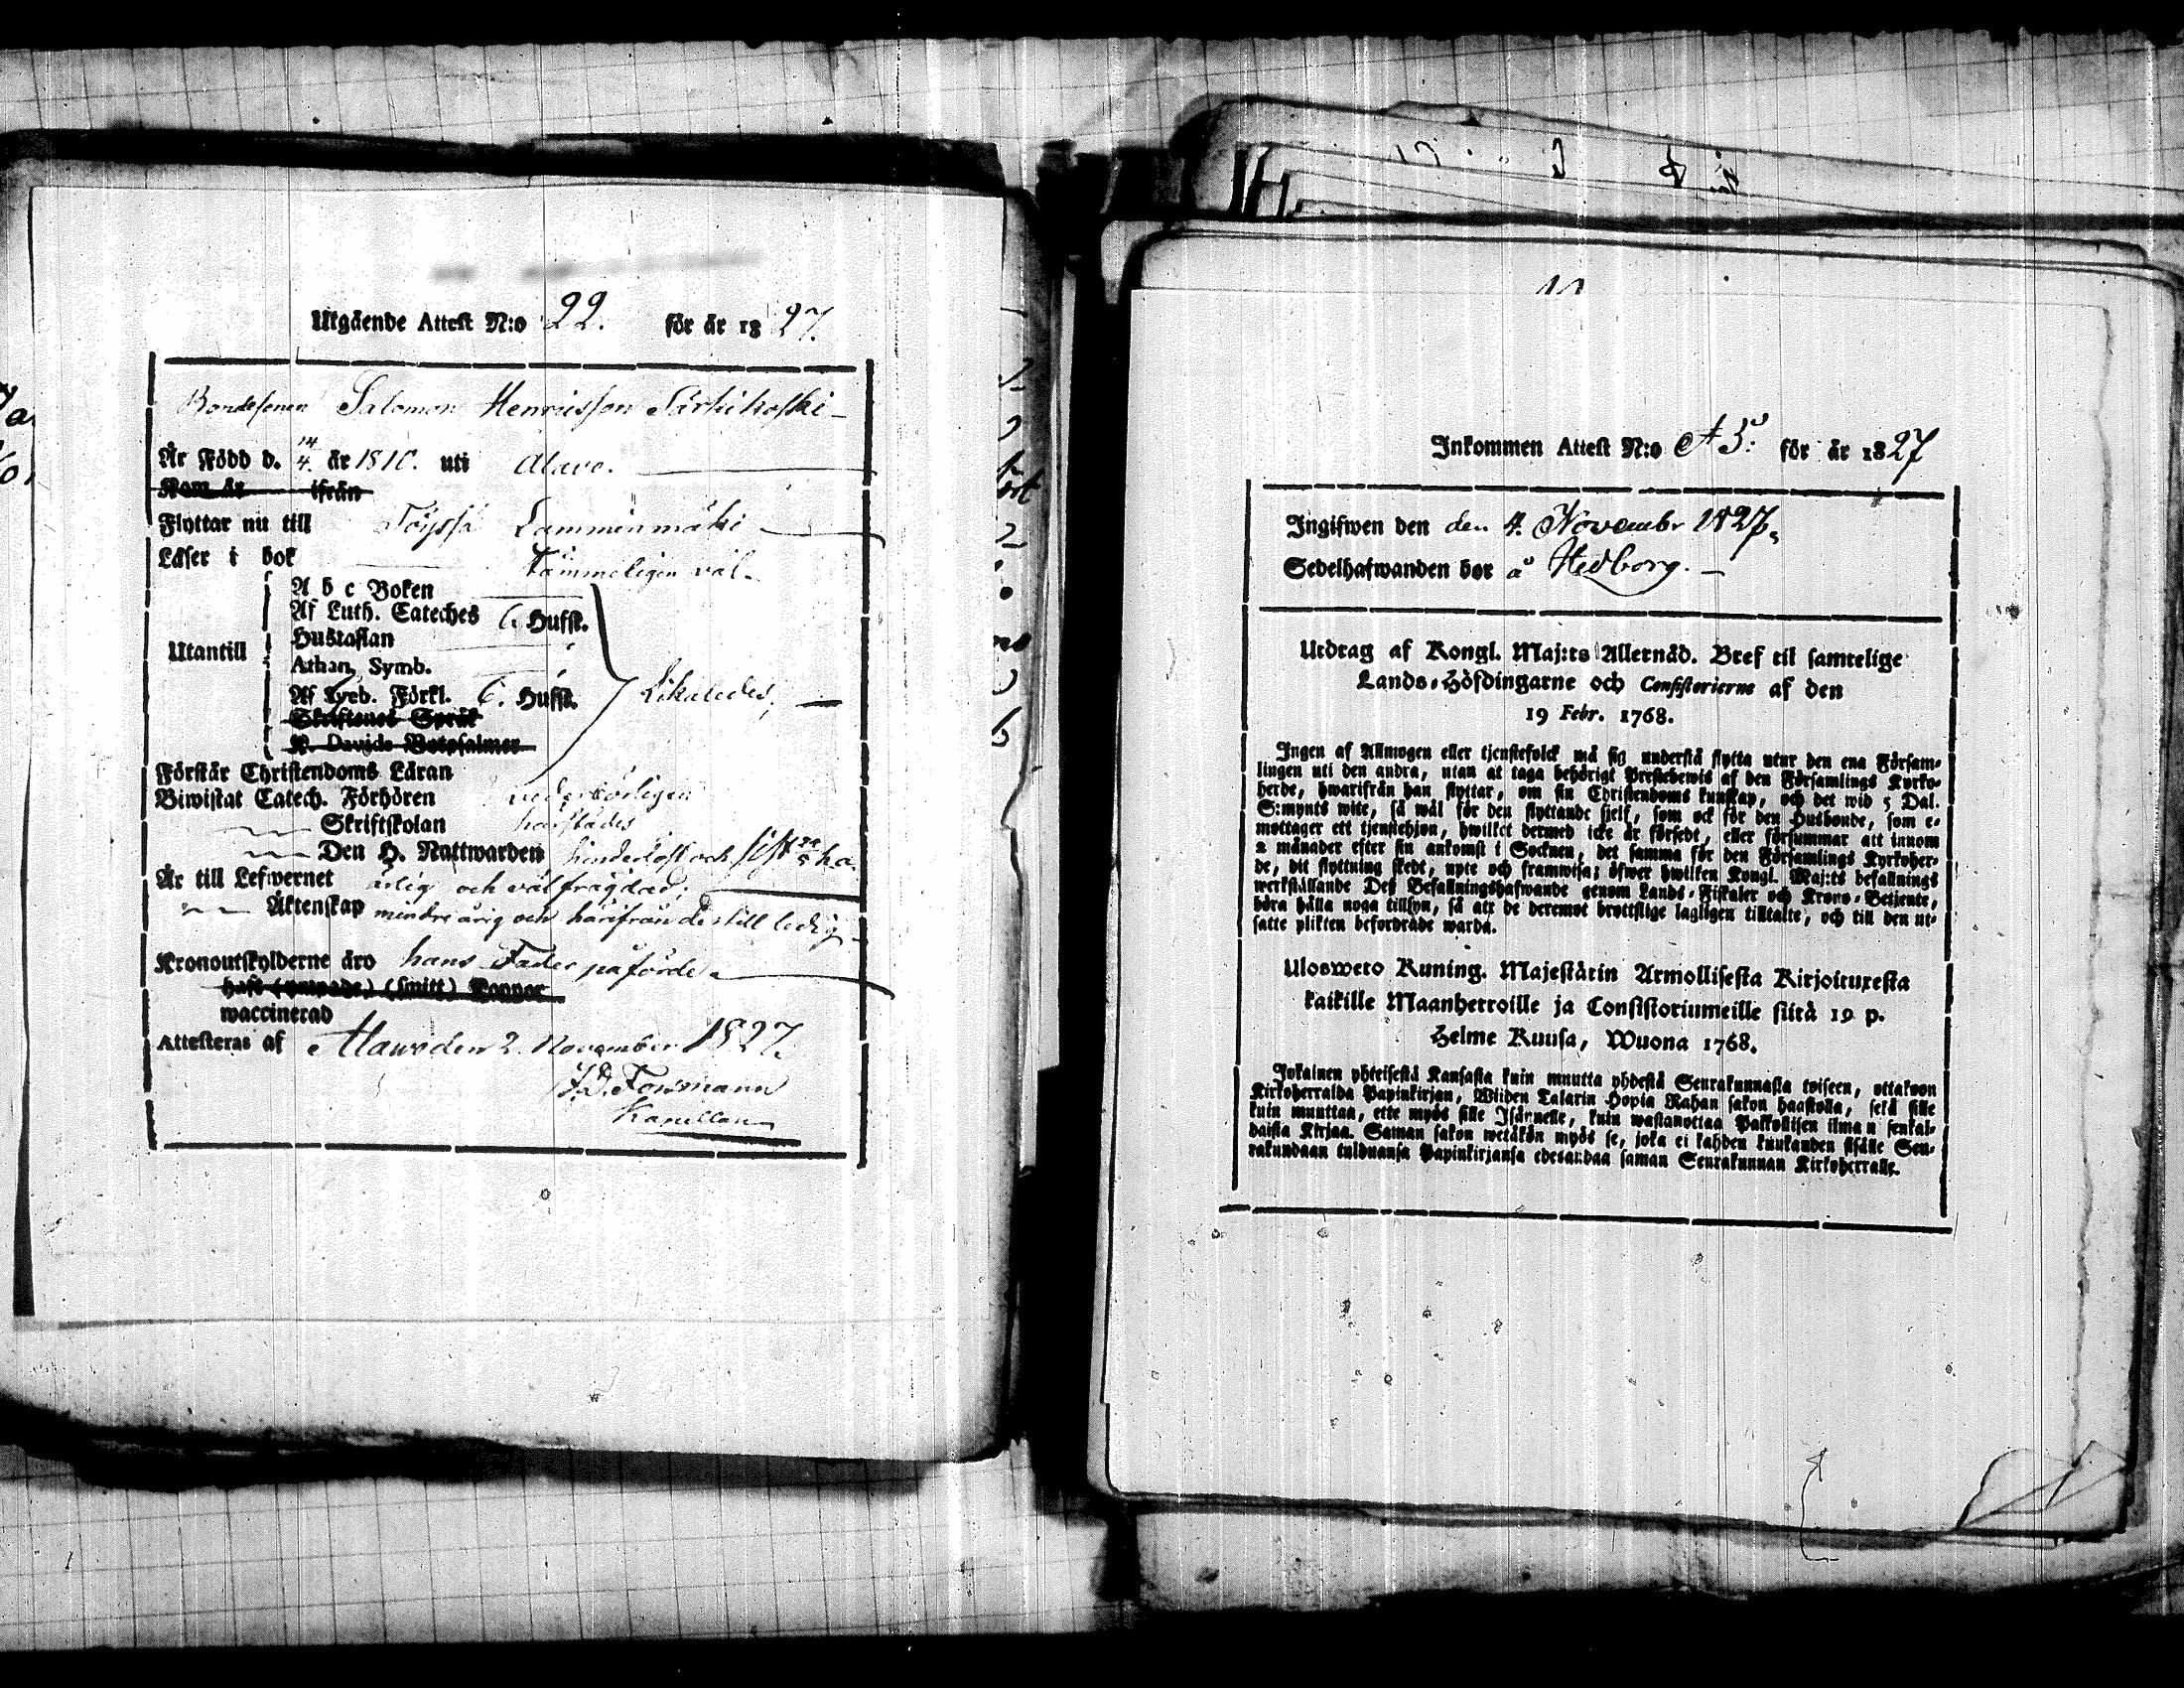 Utgående Attest N:o 22. för år 1827.
Bondesonen Salomon Henricsson Särkikoski
År Född d. 14/4. år 1810. uti Alavo.
Kom år ifrån
Flyttar nu till Töyssä Lamminmäki
Läser i bok Tämmeligen väl.
A b c Boken
Af Luth. Cateches 6. Hufst.
Hustaflan
Utantill
Athan. Symb.
Af Sveb. Förkl. 6. Hufst. Likaledes,
Skriftenes Språk
K. Davids Botpsalmer
Förstår Christendoms Läran
Biwistat Catech. Förhören vederbörligen
Skriftskolan härstädes
Den H. Nattwarden hinderlöst och sist
År till Lefwernet ärlig och välfrägdad,
Äktenskap mindre årig och härifrån dit till ledig
Kronoutskylderne äro hans Fader påförde
haft (ympade) (smitt) Koppor
waccinerad
Attesteras af Alawo den 2. November 1827.
Forssmann
Kapellan
Inkommen Attest N:o A 3: för år 1827
Ingifwen den den 4. Novembr 1827,
Sedelhafwanden bor å Hedborg.
Utdrag af Kongl. Maj:ts Allernåd. Bref til samtelige
Lands-Höfdingarne och Consistorierne af den
19 Febr. 1768.
Ingen af Allmogen eller tjenstefolck må sig understå flytta utur den ena Försam-
lingen uti den andra, utan at taga behörigt Prestebewis af den Församlings Kyrko-
herde, hwarifrån han flyttar, om sin Christendoms kunskap, och det wid 5 Dal.
S:mynts wite, så wäl för den flyttande sjelf, som ock för den Husbonde, som e-
mottager ett tjenstehjon, hwilket dermed icke är försedt, eller försummar att innom
2 månader efter sin ankomst i Socknen, det samma för den Församlings Kyrkoher-
de, dit flyttning skedt, upte och framwisa; öfwer hwilken Kongl. Maj:ts befallnings
werkställande Deß Befallningshafwande genom Lands-Fiskaler och Krono-Betjente,
böra hålla noga tillsyn, så att de deremot brottslige lagligen tilltalte, och till den ut-
satte plikten befordrade warda.
Ulosweto Kuning. Majestätin Armollisesta Kirjoituxesta
kaikille Maanherroille ja Consistoriumeille siitä 19 p.
Helme Kuusa, Wuona 1768.
Jokainen yhteisestä Kansasta kuin muutta yhdestä Seurakunnasta toiseen, ottakoon
Kirkoherralda Papinkirjan, Wiiden Talarin Hopia Rahan sakon haastolla, sekä sille
kuin muuttaa, ette myös sille Isännelle, kuin wastanottaa Palkollisen ilman senkal-
daista Kirjaa. Saman sakon wetäkön myös se, joka ei kahden kuukauden sisälle Seu-
rakundaan tulduansa Papinkirjansa edesandaa saman Seurakunnan Kirkoherralle.